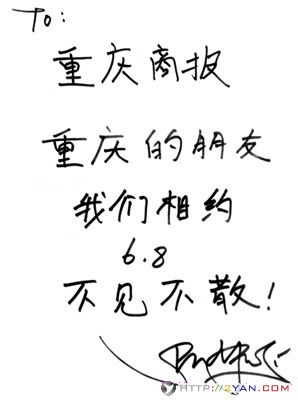 To:
重庆商报
重庆的朋友
我们相约
6.8
不见不散!
HTTP://2YAN.COM